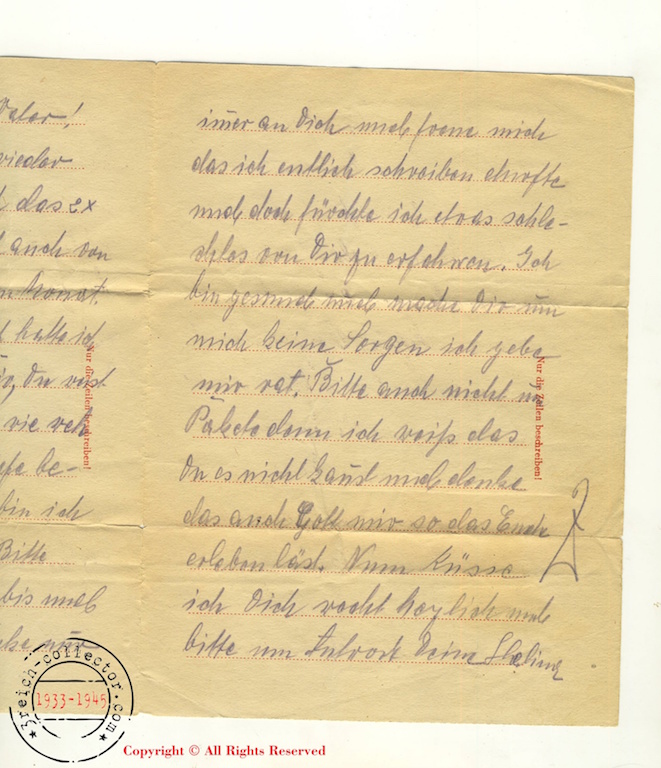 Vater!
wieder
das ex
auch von
Monat.
hatte ich
Du
wie weh
be-
bin ich
Bitte
bis und
nur
im̅er an Dich und freue mich
das ich entlich schreiben durfte
und doch fürchte ich etwas schle-
chtes von Dir zu erfahren. Ich
bin gesund und mache Dir um
mich keine Sorgen ich gebe
mir rat. Bitte auch nicht um
Pakete denn ich weiß das
Du es nicht kanst und danke
das auch Gott mir so das Ende
erleben läst. Nun küsse
ich Dich recht herzlich und
bitte um Antwort Deine
Nur die Zeilen beschreiben!
Nur die Zeilen beschreiben!
3reich-collector.com
1933-1945
Copyright © All Rights Reserved